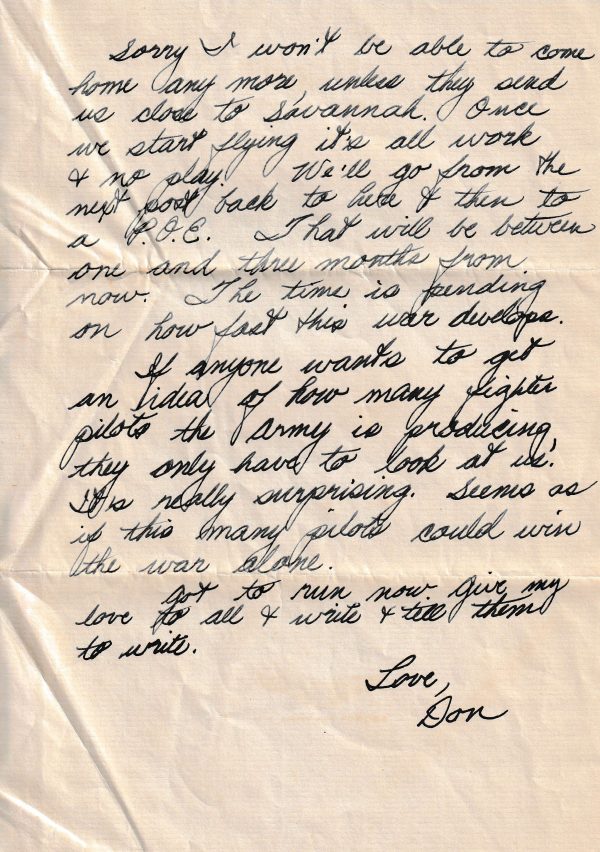 Sorry I won't be able to come
home any more, unless they send
us close to Savannah. Once
we start flying it's all work
& no play. We'll go from the
next post back to here & then to
a P.O.E. That will be between
one and three months from
now. The time is pending
on how fast this war develops.
If anyone wants to get
an idea of how many fighter
pilots the Army is producing,
they only have to look at us.
It's really surprising. Seems as
if this many pilots could win
the war alone.
Got to run now. Give my
love to all & write & tell them
to write.
Love,
Don